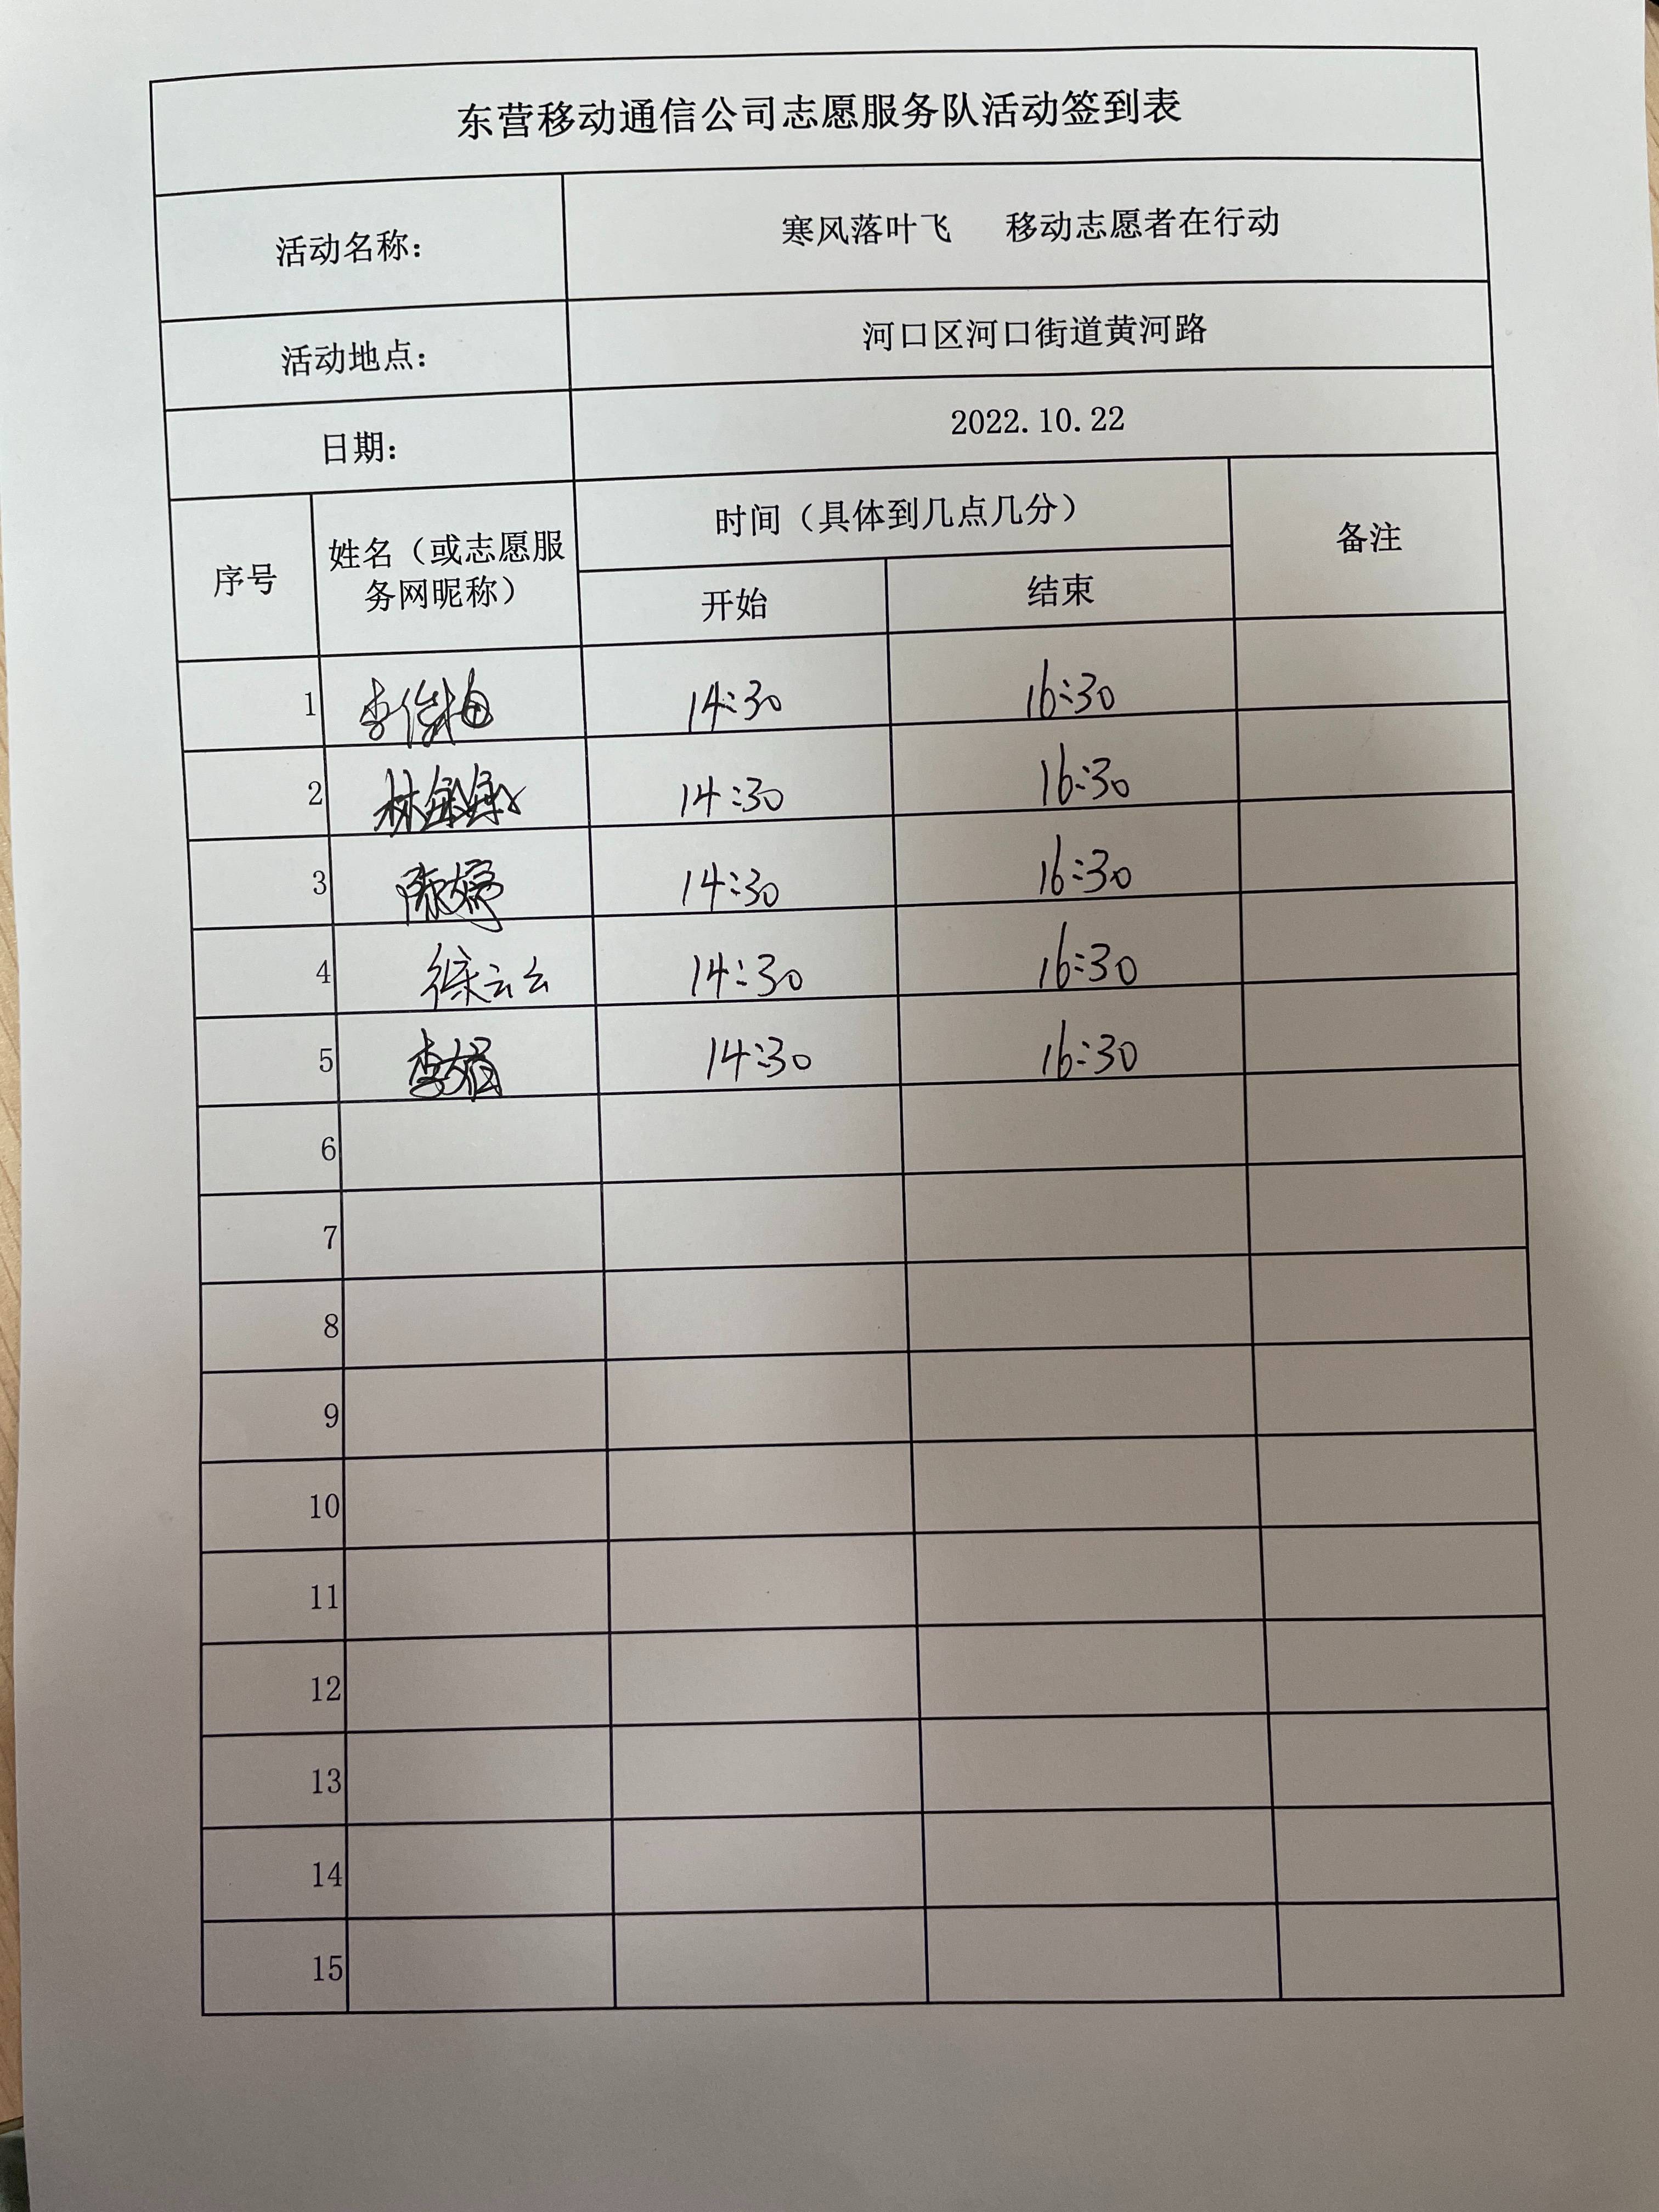 东营移动通信公司志愿服务队活动签到表
活动名称： 寒风落叶飞 移动志愿者在行动
活动地点： 河口区河口街道黄河路
日期： 2022.10.22
序号 姓名（或志愿服务网昵称） 时间（具体到几点几分） 备注
开始 结束
1 李俊梅 14:30 16:30
2 林敏敏 14:30 16:30
3 陈婷 14:30 16:30
4 徐云云 14:30 16:30
5 李娟 14:30 16:30
6
7
8
9
10
11
12
13
14
15